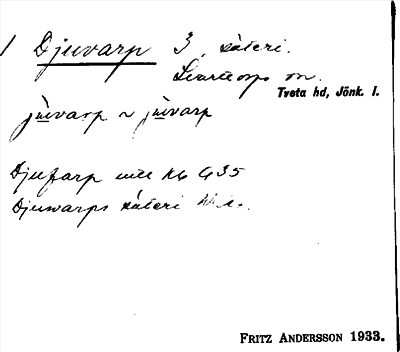 1 Djuvarp 3, säteri.
Svarttorps sn.
Tveta hd, Jönk. l.
jùvarp ~ jùvarp
Djufarp
Djuvarps säteri
FRITZ ANDERSSON 1933.